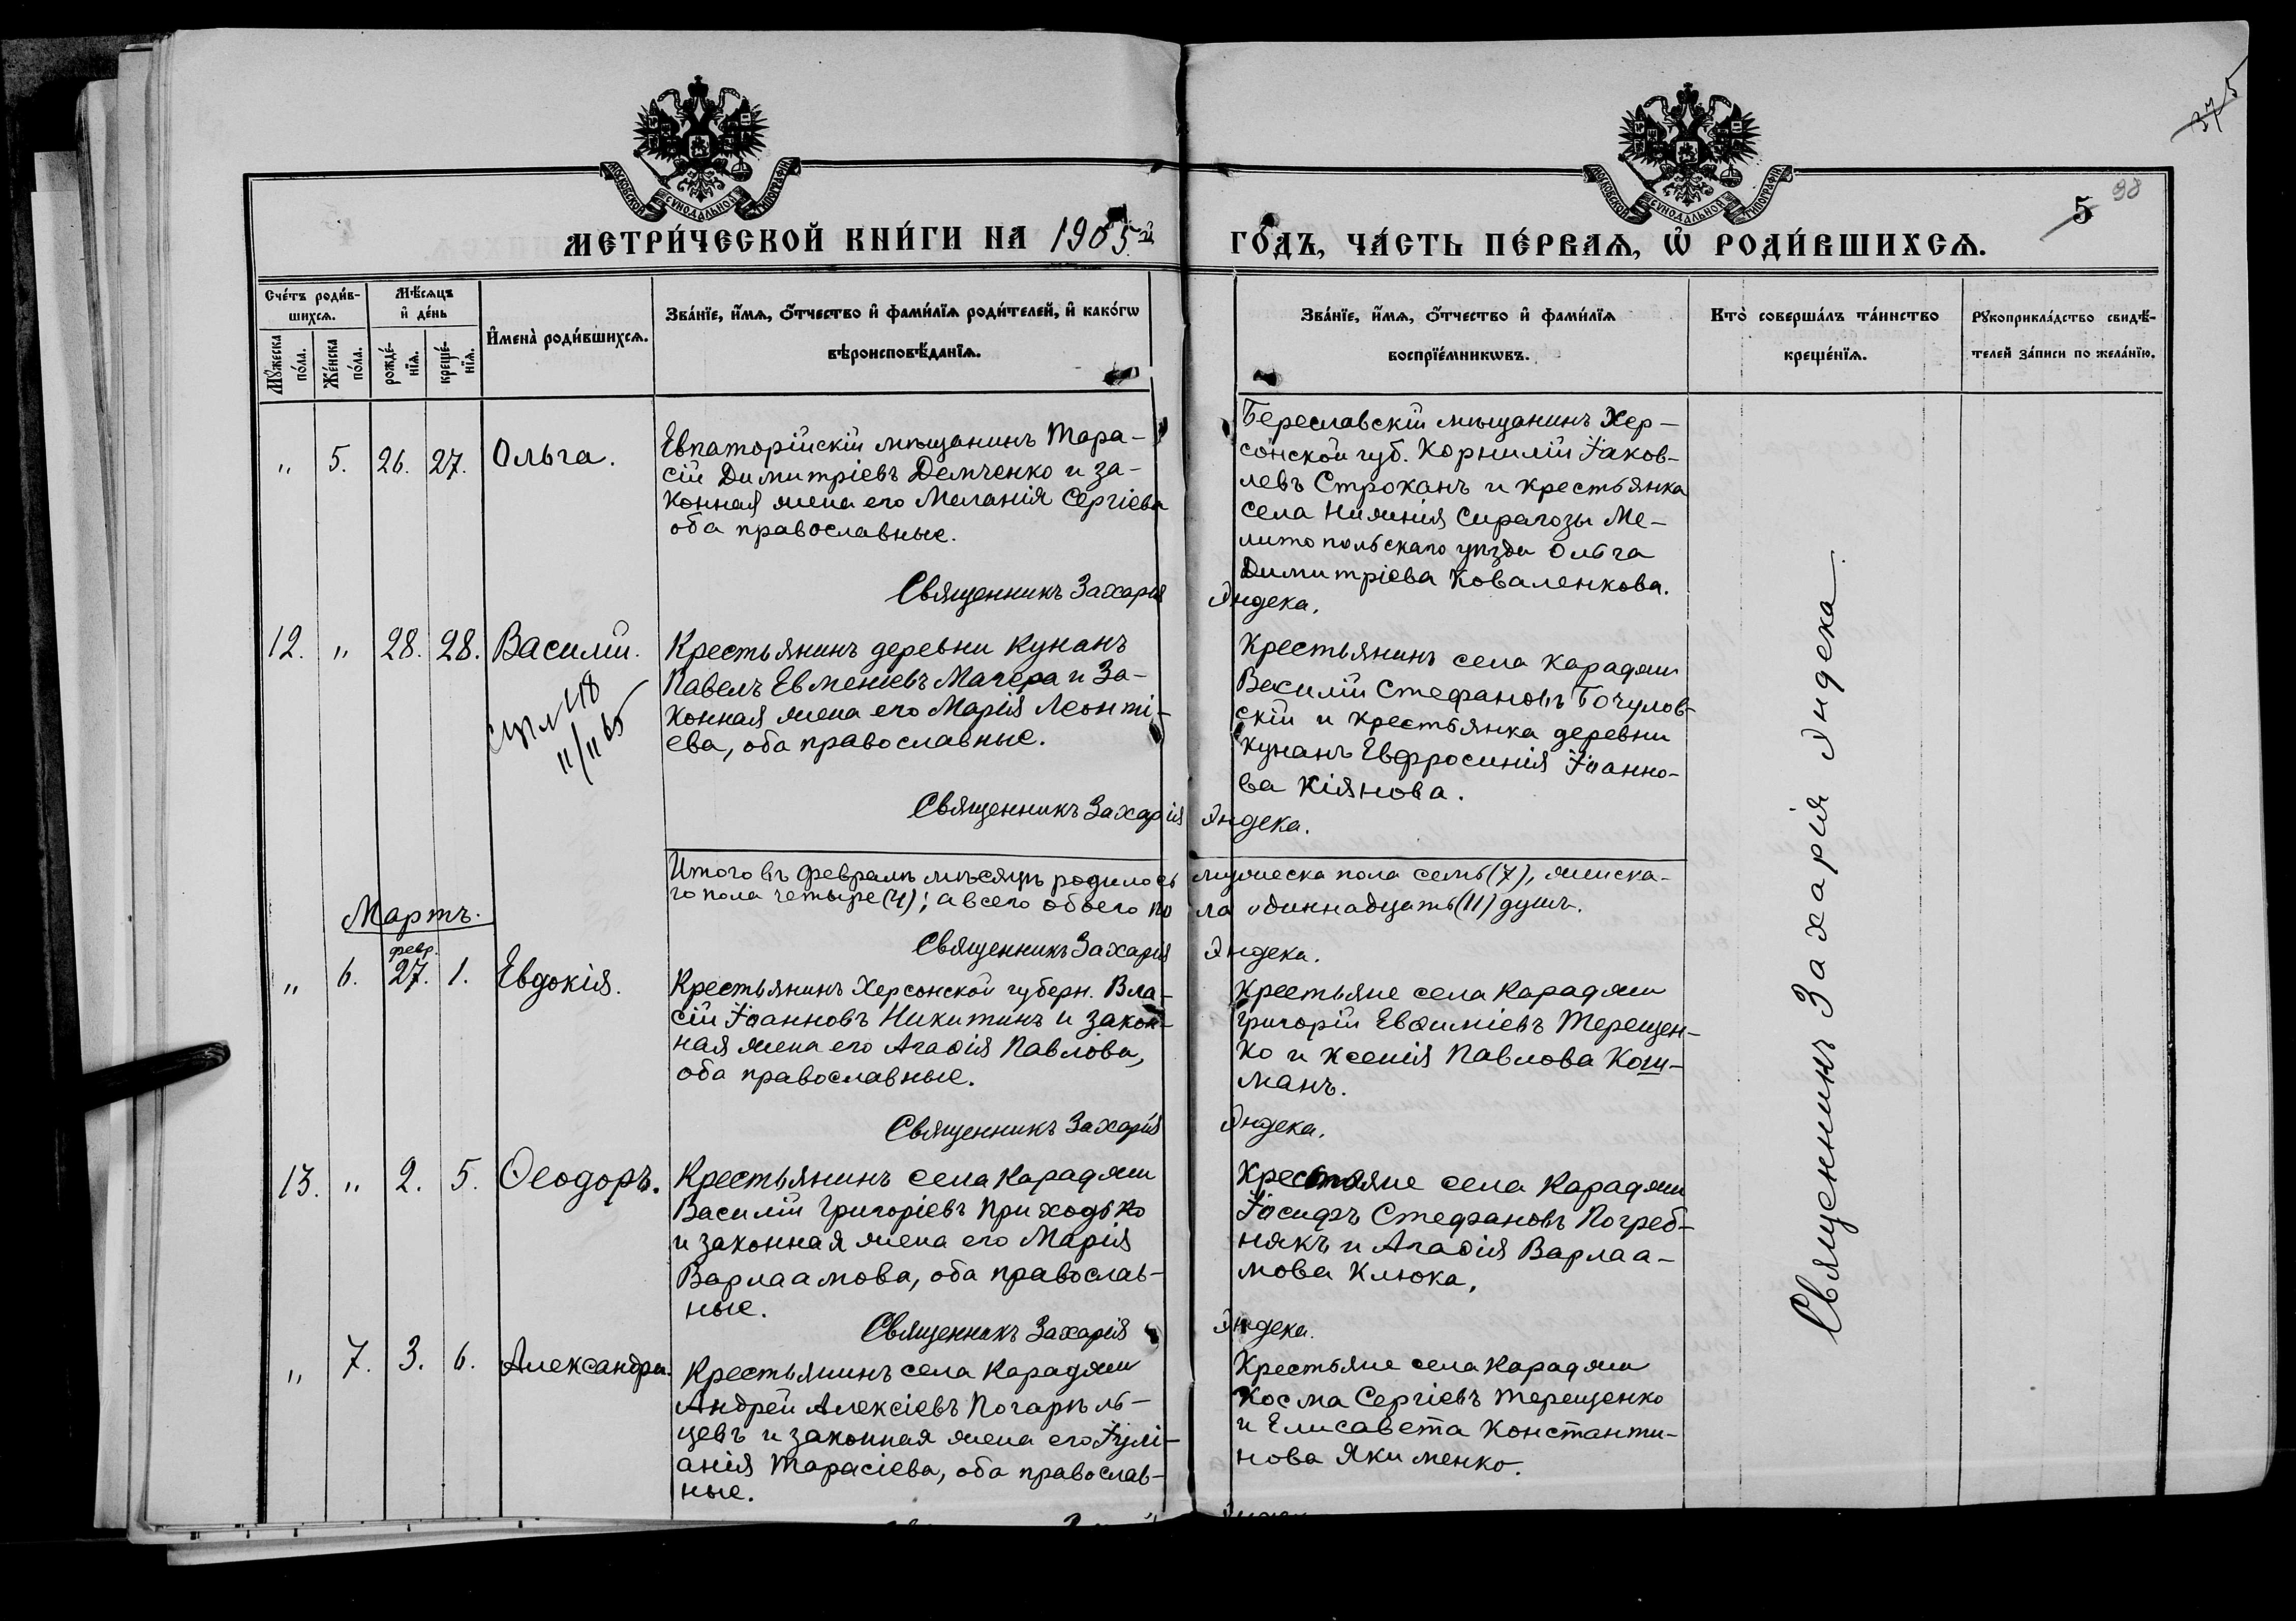 375
МОСКОВСКОЙ СѴНОДАЛЬНОЙ ТИПОГРАФІИ
МОСКОВСКОЙ СѴНОДАЛЬНОЙ ТИПОГРАФІИ
5 98
МЕТРИ́ЧЕСКОЙ КНИ́ГИ НА 1905й ГО́ДЪ, ЧА́СТЬ ПЕ́РВАѦ, Ѡ҆ РОДИ́ВШИХСѦ.
Сче́тъ роди́в-
шихсѧ.
Мꙋ́жеска
по́ла.
Же́нска
по́ла.
Мѣ́сѧцъ
и҆ де́нь
рожде́-
нїѧ.
креще́-
нїѧ.
И҆мена̀ роди́вшихсѧ.
Зва́нїе, и҆́мѧ, ѻ҆́тчество и҆ фами́лїѧ роди́телей, и҆ како́гѡ
вѣроисповѣ́данїѧ.
Зва́нїе, и҆́мѧ, ѻ҆́тчество и҆ фами́лїѧ
воспрїе́мникѡвъ.
Кто̀ соверша́лъ та́инство
креще́нїѧ.
Рꙋкоприкла́дство свидѣ́-
телей за́писи по жела́нїю.
" 5. 26. 27. Ольга.
Евпаторійскій мѣщанинъ Тара-
сій Димитріевъ Демченко и за-
конная жена его Меланія Сергіева
оба православные.
Береславскій мѣщанинъ Хер-
сонской губ. Корнилій Іаков-
левъ Строканъ и крестьянка
села Нижнія Сирагозы Ме-
литопольскаго уѣзда Ольга
Димитріева Коваленкова.
Священникъ Захарія Яндека.
12. " 28. 28. Василій.
118
11/11 65
Крестьянинъ деревни Кунанъ
Павелъ Евменіевъ Магера и за-
конная жена его Марія Леонті-
ева, оба православные.
Крестьянинъ села Караджи
Василій Стефановъ Бочулов-
скій и крестьянка деревни
Кунанъ Евфросинія Іоанно-
ва Кіянова.
Священникъ Захарія Яндека.
Итого въ февралѣ мѣсяцѣ родилось мужеска пола семь (7), женска-
го пола четыре (4); а всего обоего по ла одиннадцать (11) душъ.
Священникъ Захарія Яндека.
Мартъ.
" 6. февр. 27. 1. Евдокія.
Крестьянинъ Херсонской губерн. Вла-
сій Іоанновъ Никитинъ и закон-
ная жена его Агаѳія Павлова,
оба православные.
Крестьяне села Караджи
Григорій Евѳиміевъ Терещен-
ко и Ксенія Павлова Кош-
манъ.
Священникъ Захарія Яндека.
13. " 2. 5. Ѳеодоръ.
Крестьянинъ села Караджи
Василій Григоріевъ Приходько
и законная жена его Марія
Варлаамова, оба православ-
ные.
Крестьяне села Караджи
Іосифъ Стефановъ Погреб-
някъ и Агаѳія Варлаа-
мова Клюка.
Священникъ Захарія Яндека.
" 7. 3. 6. Александра.
Крестьянинъ села Караджи
Андрей Алексіевъ Погарѣль-
цевъ и законная жена его Іулі-
анія Тарасіева, оба православ-
ные.
Крестьяне села Караджи
Косма Сергіевъ Терещенко
и Елисавета Константи-
нова Якименко.
Священникъ Захарія Яндека